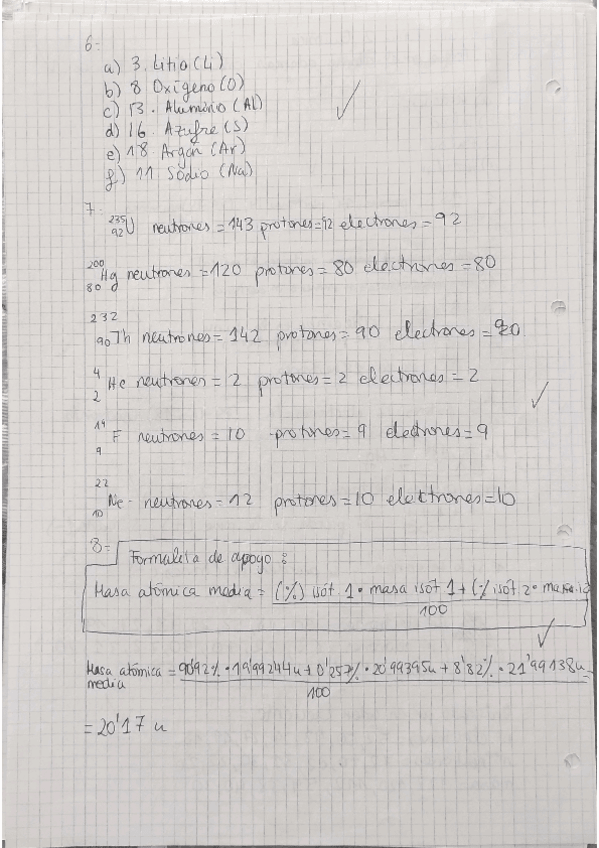 6=
a) 3. Litio (Li)
b) 8 Oxígeno (O)
c) 13. Aluminio (Al)
d) 16. Azufre (S)
e) 18 Argón (Ar)
f) 11 Sodio (Na)
7=
235 92 U neutrones = 143 protones = 92 electrones = 92
200 80 Hg neutrones = 120 protones = 80 electrones = 80
232 90 Th neutrones = 142 protones = 90 electrones = 90
4 2 He neutrones = 2 protones = 2 electrones = 2
19 9 F neutrones = 10 protones = 9 electrones = 9
22 10 Ne neutrones = 12 protones = 10 electrones = 10
8= Formulita de apoyo:
Masa atómica media = (%) isót. 1 · masa isót 1 + (% isot. 2 · masa
100
Masa atómica media = 90'92% · 19'99244u + 0'257% · 20'99395u + 8'82% · 21'99138u
100
= 20'17 u